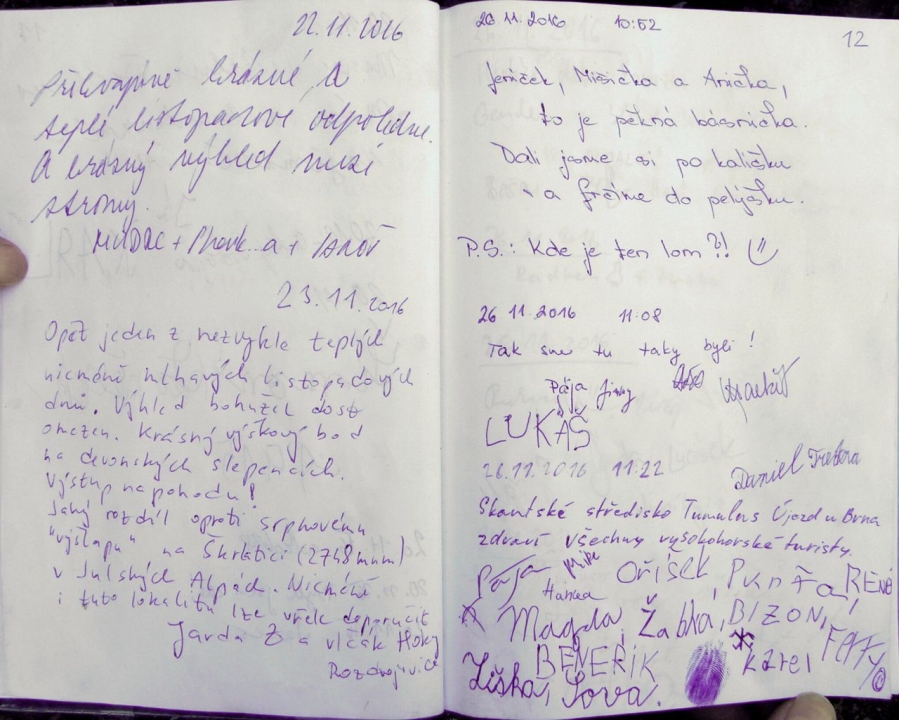 22.11.2016
Překvapivě krásné a
teplé listopadové odpoledne.
A krásný výhled mezi
stromy.
23.11.2016
Opět jeden z nezvykle teplých
nicméně mlhavých listopadových
dnů. Výhled bohužel dost
omezen. Krásný výškový bod
na devonských slepencích.
Výstup na pohodu!
Jaký rozdíl oproti srpnovému
"výšlapu" na Škrlatici (2748 mnm)
v Julských Alpách. Nicméně
i tuto lokalitu lze vřele doporučit
Jarda Z a vlčák Hoky
Rozdrojovice
12
26 11. 2016 10:52
Jeníček, Mišička a Anička,
to je pěkná básnička.
Dali jsme si po kalíšku
a frčíme do pelíšku.
P.S.: Kde je ten lom?!
26 11. 2016 11:08
Tak sme tu taky byli!
Pája Jimmy
LUKÁŠ
26.11.2016 11:22
Daniel
Skautské středisko Tumulus Újezd u Brna
zdraví všechny vysokohorské turisty.
Pája Mike Oříšek, Punťa, RENÉ
Hanka
Magda, Žabka, BIZON,
BENERIK Karel Ferry
Liška, Sova.